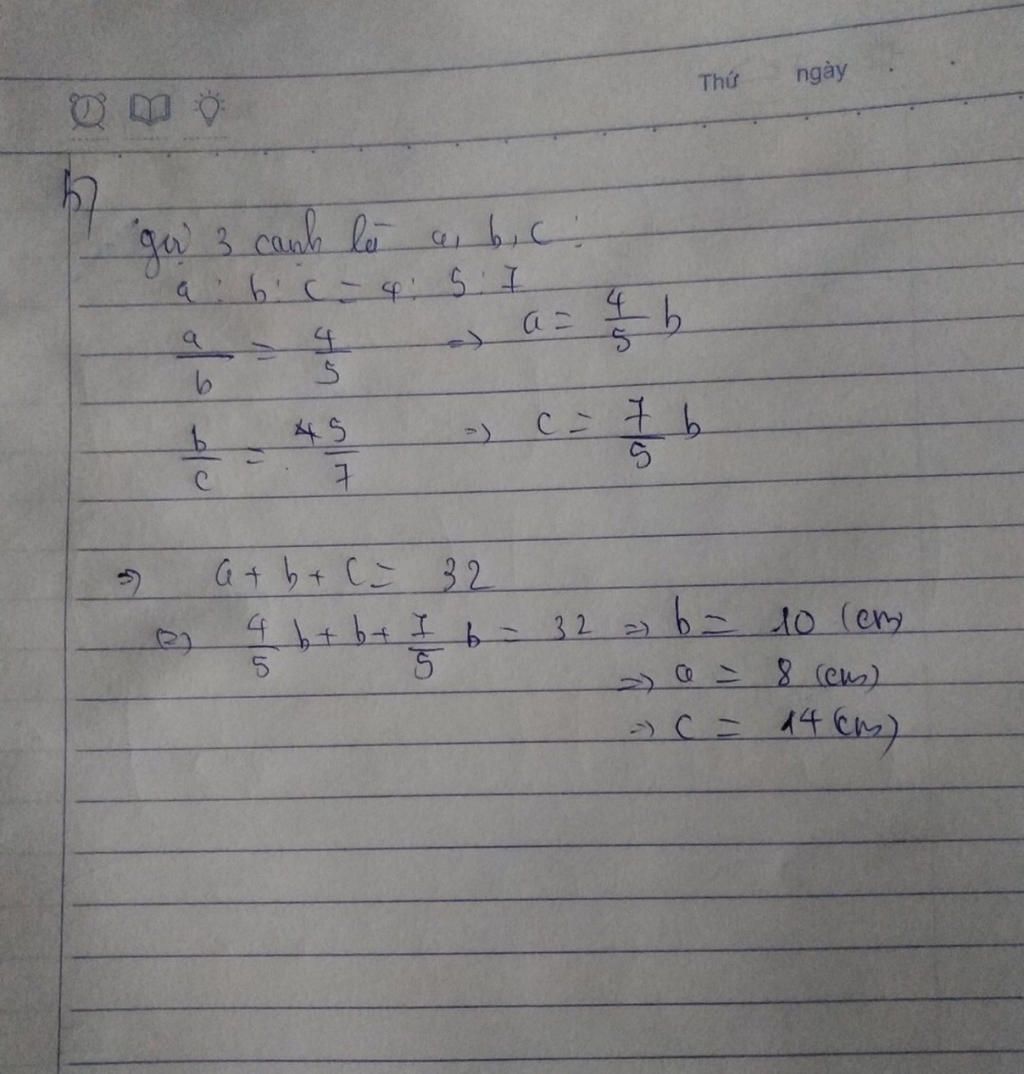 Thứ ngày
b)
gọi 3 cạnh là a, b, c :
a : b : c = 4 : 5 : 7
a/b = 4/5 => a = 4/5 b
b/c = 5/7 => c = 7/5 b
=> a + b + c = 32
(=) 4/5 b + b + 7/5 b = 32 => b = 10 (cm)
=> a = 8 (cm)
=> c = 14 (cm)